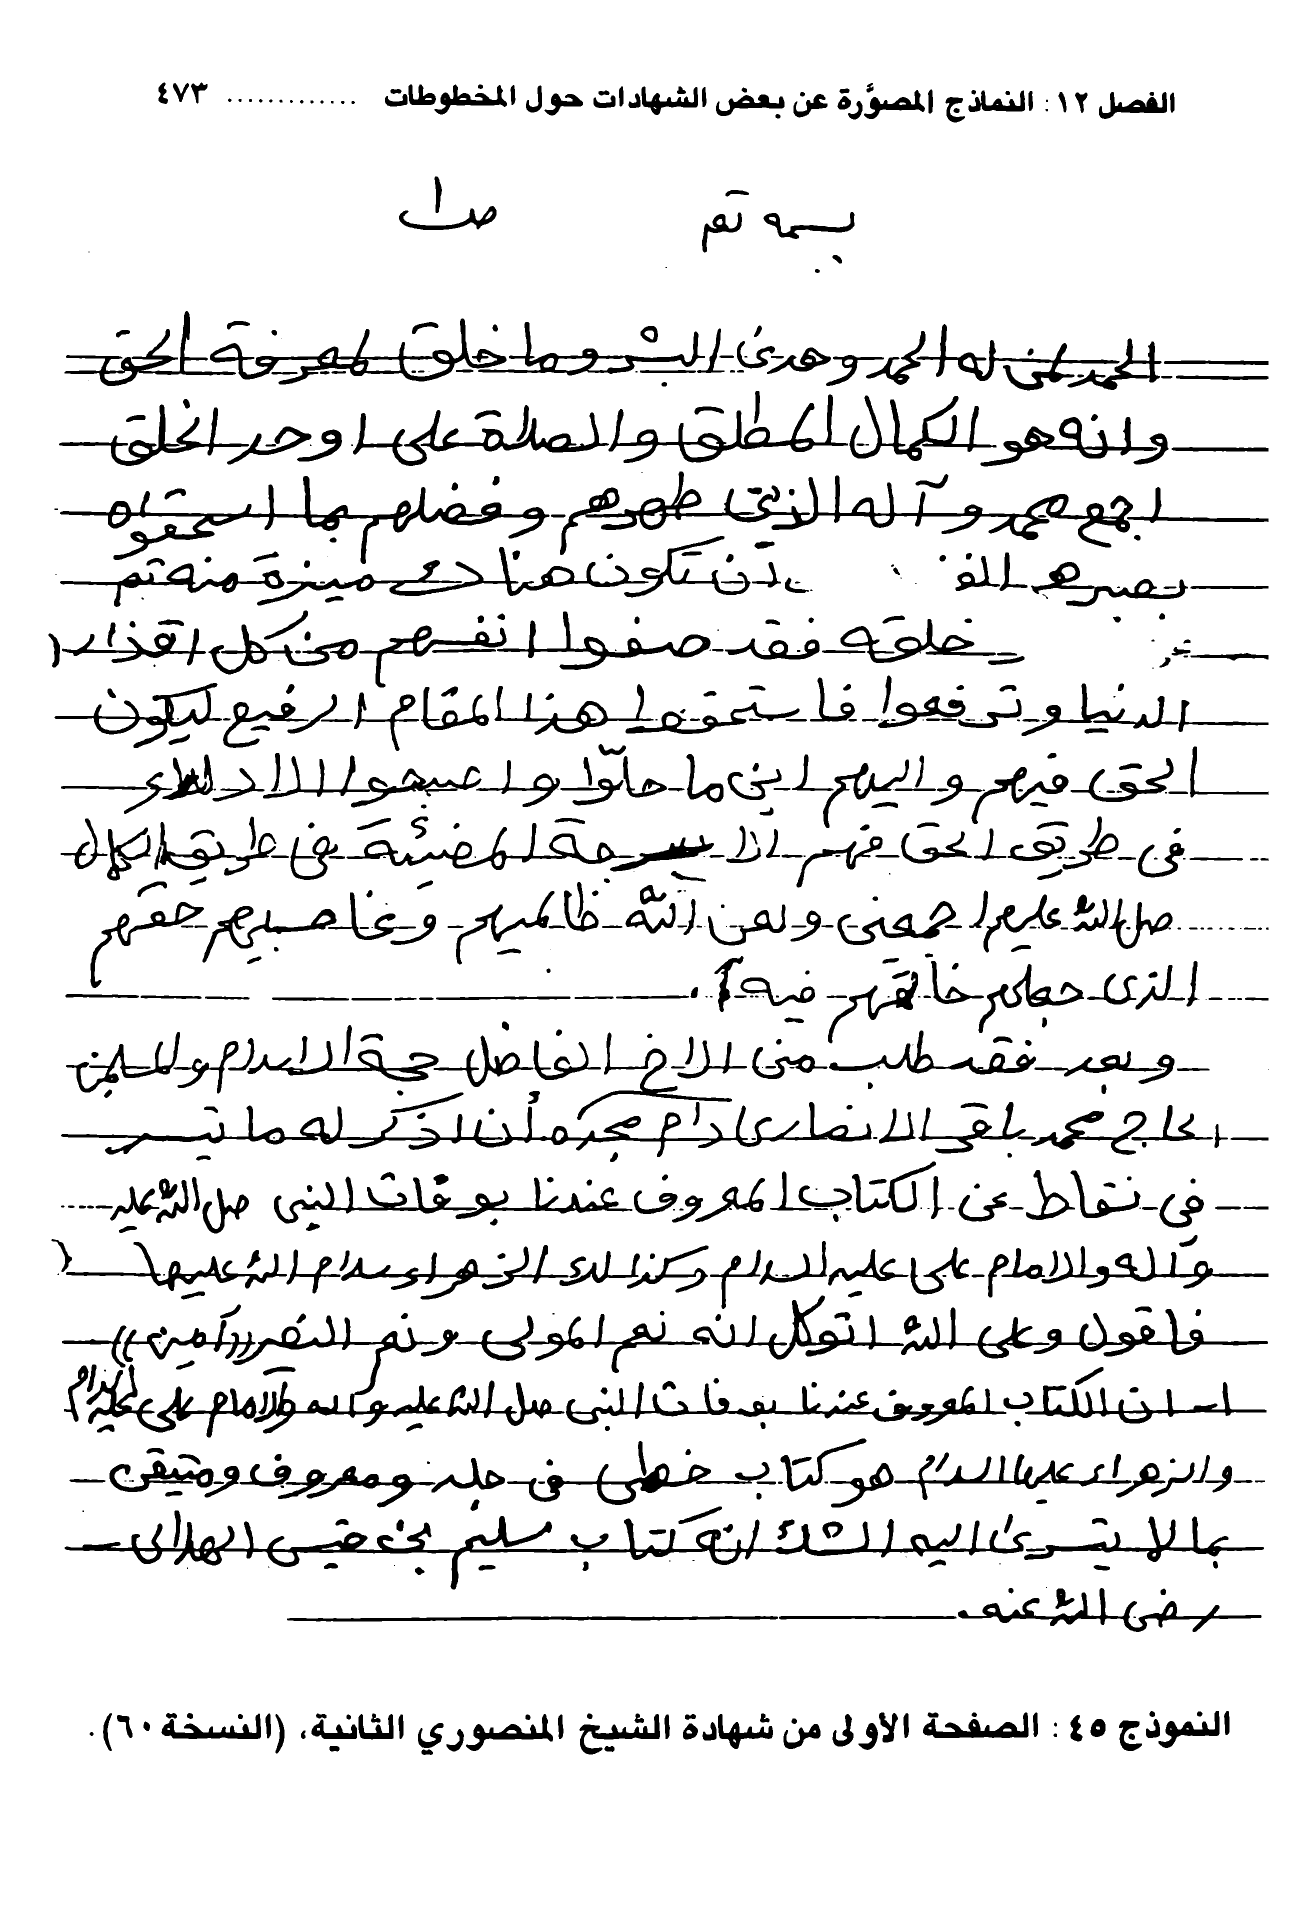 الفصل ١٢: النماذج المصوَّرة عن بعض الشهادات حول المخطوطات ............. ٤٧٣
بسمه تع ص١
الحمد لمن له الحمد وهدىٰ البشر وما خلق لمعرفة الحق
وانه هو الكمال المطلق والصلاة على اوحد الخلق
اجمع محمد وآله الذين طهرهم وفضلهم بما استحقوا
تكون هنا ميزة منه تع
خلقه فقد صفوا انفسهم من كل اقذار
الدنيا وترفعوا فاستحقوا هذا المقام الرفيع ليكون
الحق فيهم واليهم اينما حلّوا واصبحوا
في طريق الحق فهم المضيئة في طريق الكمال
صل الله عليهم اجمعين ولعن الله ظالميهم وغاصبيهم حقهم
الذي جعلهم خالقهم فيه.
وبعد فقد طلب مني الاخ الفاضل حجة الاسلام والمسلمين
الحاج محمد باقر الانصاري دام مجده أن اذكر له ما تيسر
في نقاط عن الكتاب المعروف عندنا بوفات النبي صل الله عليه
وآله والامام علي عليه السلام وكذلك الزهراء سلام الله عليها
فاقول وعلى الله اتوكل انه نعم المولى ونعم النصير((آمين))
١ـ ان الكتاب المعروف عندنا بوفات النبي صل الله عليه وآله والامام علي عليه السلام
والزهراء عليها السلام هو كتاب خطي في جلد ومعروف ومتيقن
بما لا يتسرىٰ اليه الشك انه كتاب سليم بن قيس الهلالي -
رضي الله عنه.
النموذج ٤٥: الصفحة الاولى من شهادة الشيخ المنصوري الثانية، (النسخة ٦٠).